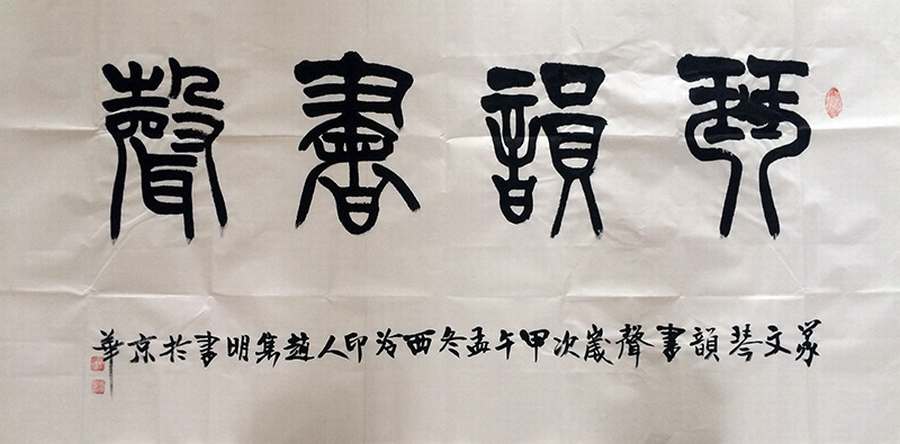 琴韻書聲
篆文琴韻書聲歲次甲午孟冬西泠印人趙集明書於京華